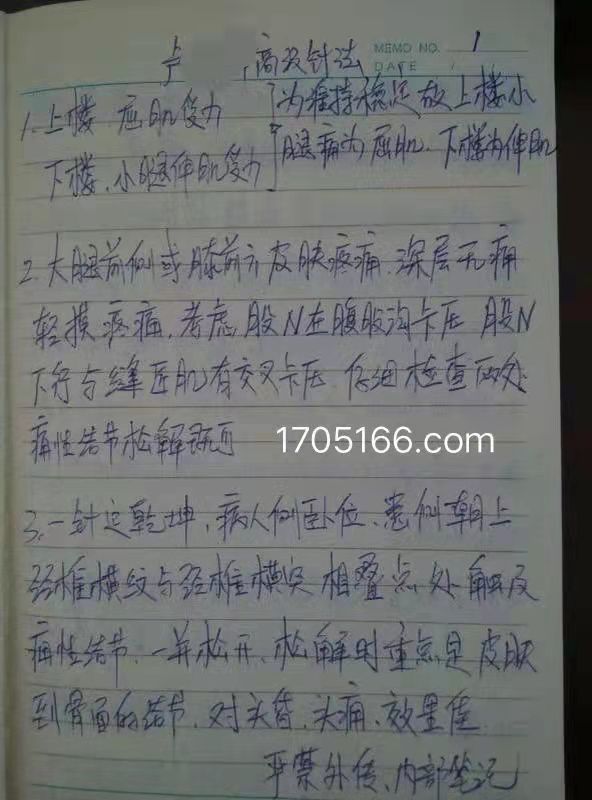 MEMO NO. 1
高级针法
DATE
1. 上楼 屈肌受力
下楼、小腿伸肌受力
为维持稳定故上楼小
腿痛为屈肌、下楼为伸肌
2. 大腿前侧或膝前方皮肤疼痛、深层无痛
轻摸疼痛,考虑股N在腹股沟卡压 股N
下行与缝匠肌有交叉卡压 仔细检查两处
痛性结节松解既可
1705166.com
3. 一针定乾坤、病人侧卧位、患侧朝上
颈椎横纹与颈椎横突相叠点处触及
痛性结节、一并松开、松解时重点是皮肤
到骨面的结节、对头昏、头痛、效果佳
严禁外传、内部笔记